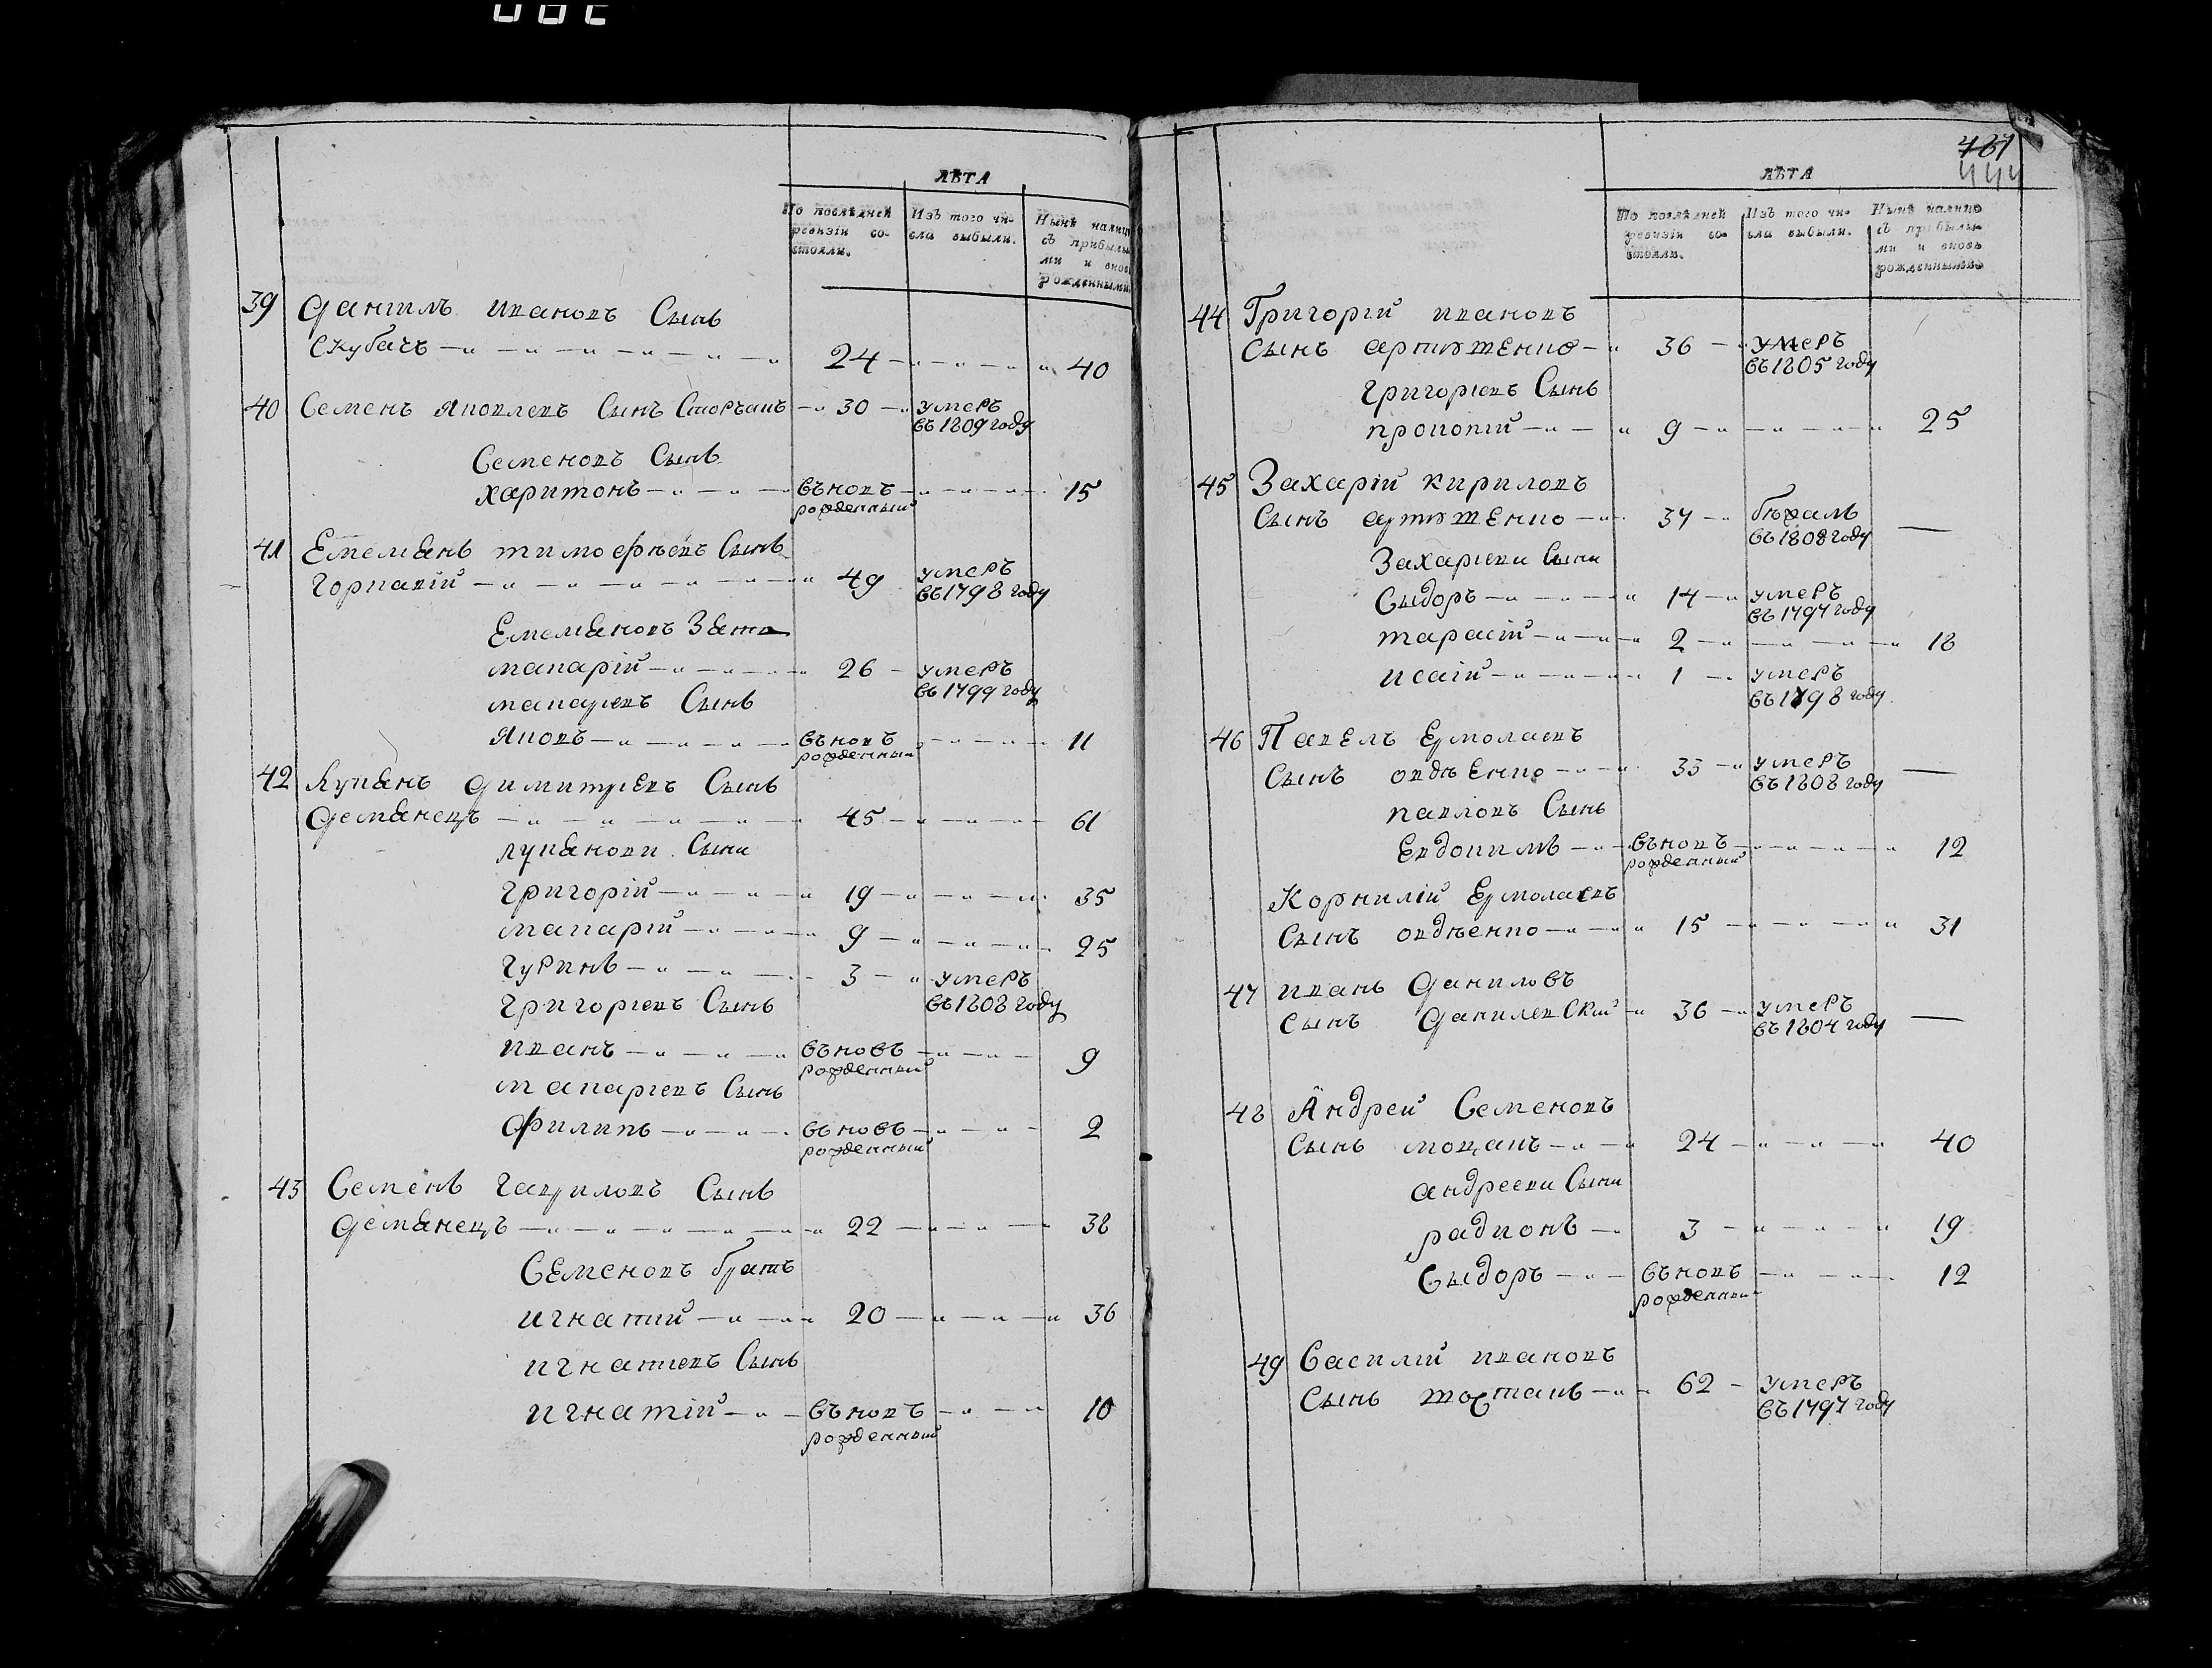 ЛѢТА
По послѣдней
ревизіи со-
стояли.
Изъ того чи-
сла выбыли.
Нынѣ налицо
съ прибылы
ми и вновь
рожденными.
39 Данилъ ивановъ Сынъ
Скубачъ 24 40
40 Семенъ яковлевъ Сынъ 30 умеръ
въ 1809 году
Семеновъ Сынъ
харитонъ въновъ 15
рожденный
41 Емелянъ тимофѣевъ Сынъ
Горкавій 49 умеръ
въ 1798 году
Емеляновъ Зять
макарій 26 умеръ
въ 1799 году
макаріевъ Сынъ
яковъ въновъ 11
рожденный
42 Лукянъ Димитріевъ Сынъ
Демянецъ 45 61
лукянови Сыни
григорій 19 35
макарій 9 25
гуринъ 3 умеръ
въ 1808 году
григоріевъ Сынъ
иванъ въновъ 9
рожденный
макаріевъ Сынъ
филипъ въновъ 2
рожденный
43 Семенъ гавриловъ Сынъ
Демянецъ 22 38
Семеновъ братъ
игнатий 20 36
игнатиевъ Сынъ
игнатій въновъ 10
рожденный
431
444
ЛѢТА
По послѣдней
ревизіи со-
стояли.
Изъ того чи-
сла выбыли.
Нынѣ налицо
съ прибылы-
ми и вновь
рожденными.
44 Григорій ивановъ
Сынъ артюшенко 36 умеръ
въ 1805 году
григоріевъ Сынъ
прокопій 9 25
45 Захарій кириловъ
Сынъ артюшенко 37 бѣжалъ —
въ 1808 году
Захаріеви Сыни
Сыдоръ 14 умеръ
въ 1797 году
тарасій 2 18
исаій 1 умеръ
въ 1798 году
46 Павелъ Ермолаевъ
Сынъ овдѣенко 33 умеръ —
въ 1808 году
павловъ Сынъ
Евдокимъ въновъ 12
рожденный
Корнилій Ермолаевъ
Сынъ овдѣенко 15 31
47 иванъ Даниловъ
сынъ Данилевскій 36 умеръ —
въ 1804 году
48 Андрей Семеновъ
Сынъ моцакъ 24 40
андрееви Сыни
радионъ 3 19
Сыдоръ въновъ 12
рожденный
49 Василій ивановъ
Сынъ шостакъ 62 умеръ
въ 1797 году